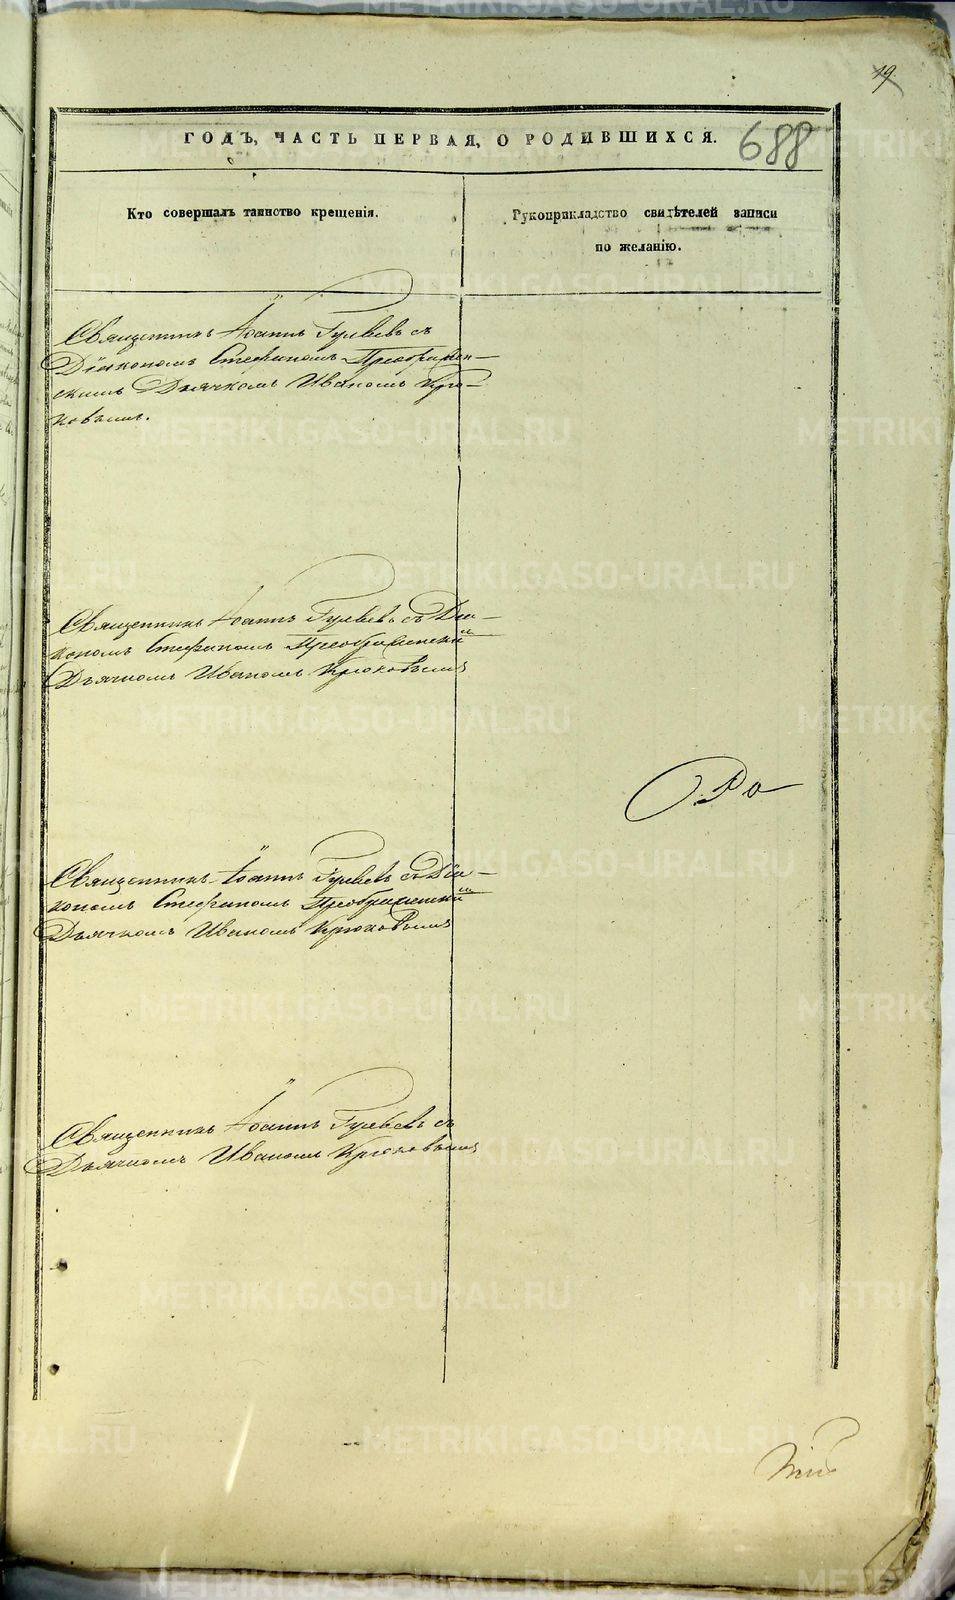 19.
ГОДЪ, ЧАСТЬ ПЕРВАЯ, О РОДИВШИХСЯ.
688
Кто совершалъ таинство крещенія.
Рукоприкладство свидѣтелей записи
по желанію.
Священникъ Іоаннъ Гуляевъ съ
Діакономъ Стефаномъ Преображен-
скимъ Дьячкомъ Иваномъ Крю-
ковымъ.
Священникъ Іоаннъ Гуляевъ съ Діа-
кономъ Стефаномъ Преображенски
Дьячкомъ Иваномъ Крюковымъ
Священникъ Іоаннъ Гуляевъ съ Діа-
кономъ Стефаномъ Преображенски
Дьячкомъ Иваномъ Крюковымъ
Священникъ Іоаннъ Гуляевъ съ
Дьячкомъ Иваномъ Крюковымъ
METRIKI.GASO-URAL.RU